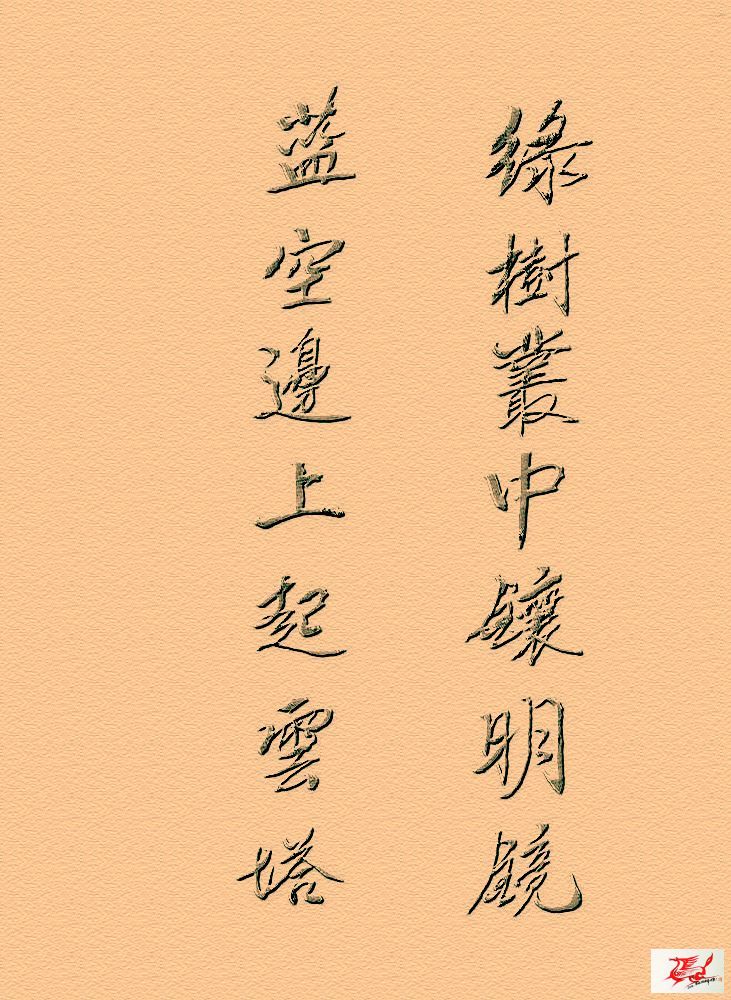 綠樹叢中鑲明鏡
藍空邊上起雲塔